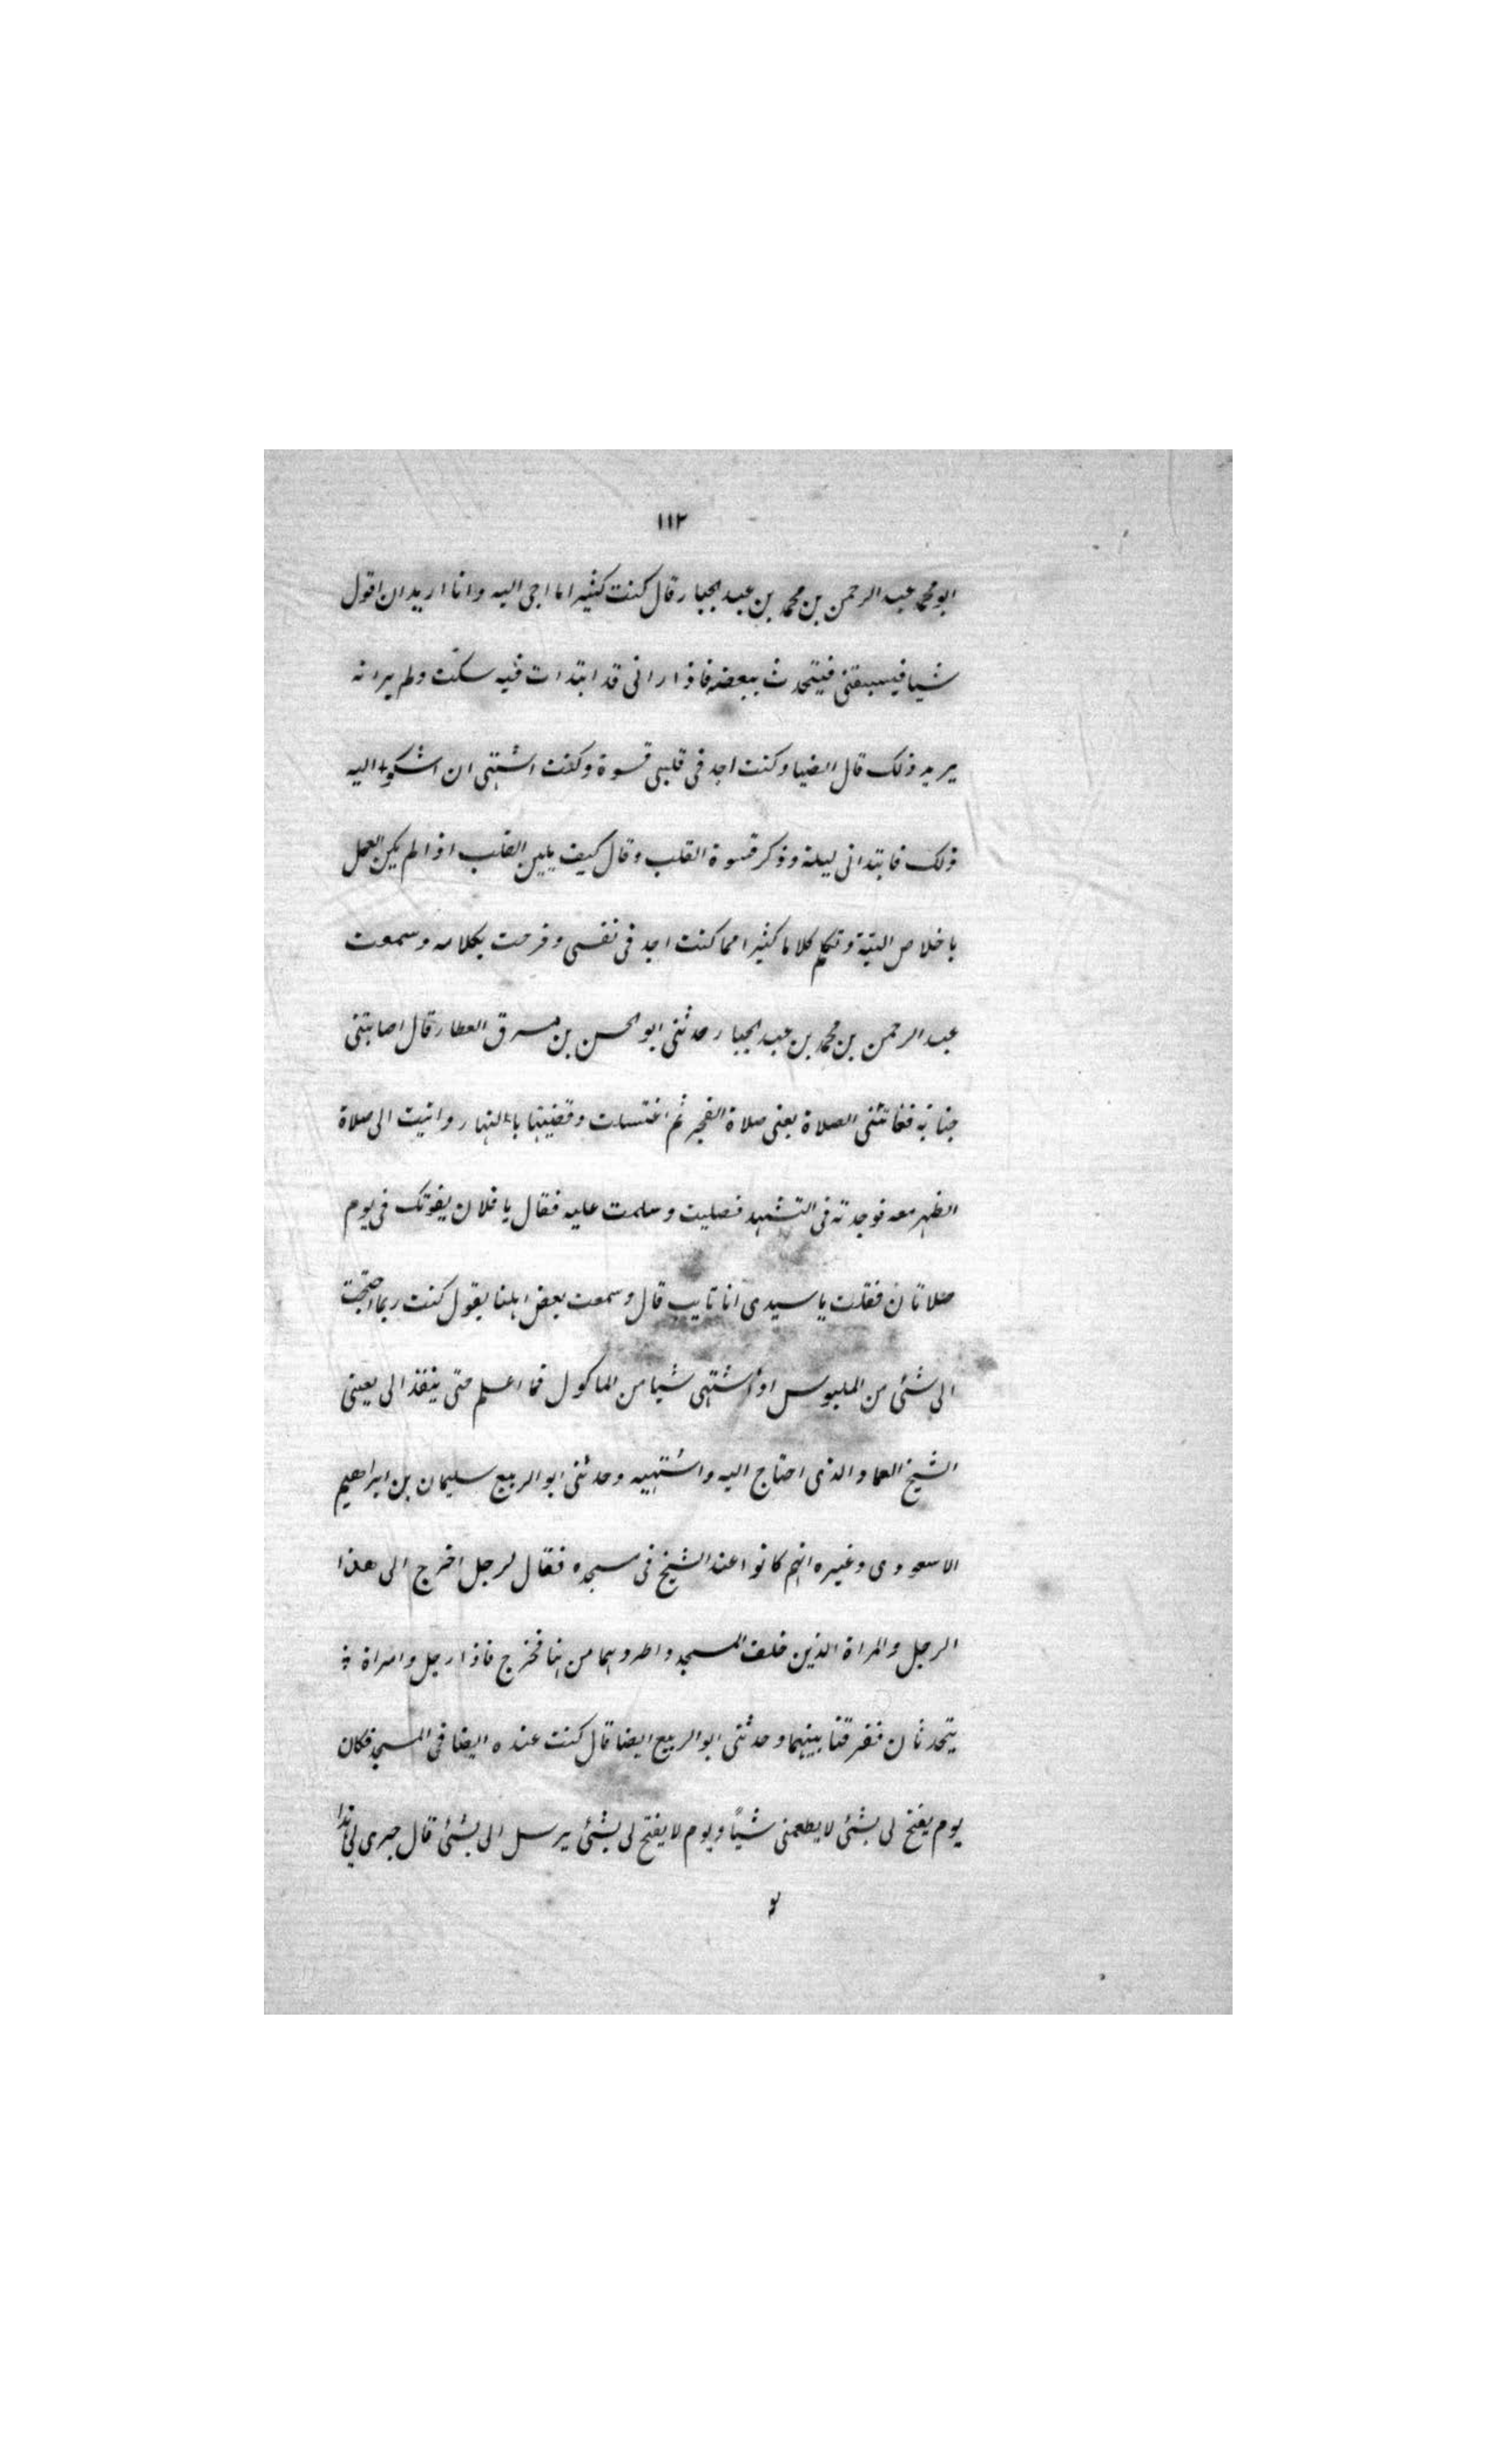 ١١٢
ابو محمد عبد الرحمن بن محمد بن عبد الجبار قال كنت كثيرا ما اجى اليه وانا اريد ان اقول
شيا فيسبقنى فيتحدث ببعضه فاذا رانى قد ابتدات فيه سكت ولم ير انه
يريد ذلك قال الضيا وكنت اجد فى قلبى قسوة وكنت اشتهى ان اشكو اليه
ذلك فابتدانى ليلة وذكر قسوة القلب وقال كيف يلين القلب اذا لم يكن العمل
باخلاص النية وتكلم كلاما كثيرا مما كنت اجد فى نفسى وفرحت بكلامه وسمعت
عبد الرحمن بن محمد بن عبد الجبار حدثنى ابو الحسن بن مسرق العطار قال اصابتنى
جنابة ففاتتنى الصلاة يعنى صلاة الفجر ثم اغتسلت وقضيتها بالنهار واتيت الى صلاة
الظهر معه فوجدته فى التشهد فصليت وسلمت عليه فقال يا فلان يفوتك فى يوم
صلاتان فقلت يا سيدى انا تايب قال وسمعت بعض اهلنا يقول كنت ربما احتجت
الى شئى من الملبوس او اشتهى شيا من الماكول فما اعلم حتى ينفذ الى يعينى
الشيخ العماد الذى احتاج اليه واشتهيه وحدثنى ابو الربيع سليمان بن ابراهيم
الاسعودى وغيره انهم كانوا عند الشيخ فى مسجده فقال لرجل اخرج الى هذا
الرجل والمراة الذين خلف المسجد واطردهما من هنا فخرج فاذا رجل وامراة
يتحدثان ففرقنا بينهما وحدثنى ابو الربيع ايضا قال كنت عنده ايضا فى المسجد فكان
يوم يفتح لى بشئى لا يطعمنى شيًا ويوم لا يفتح لى بشئى يرسل الى بشئى قال جرى لى